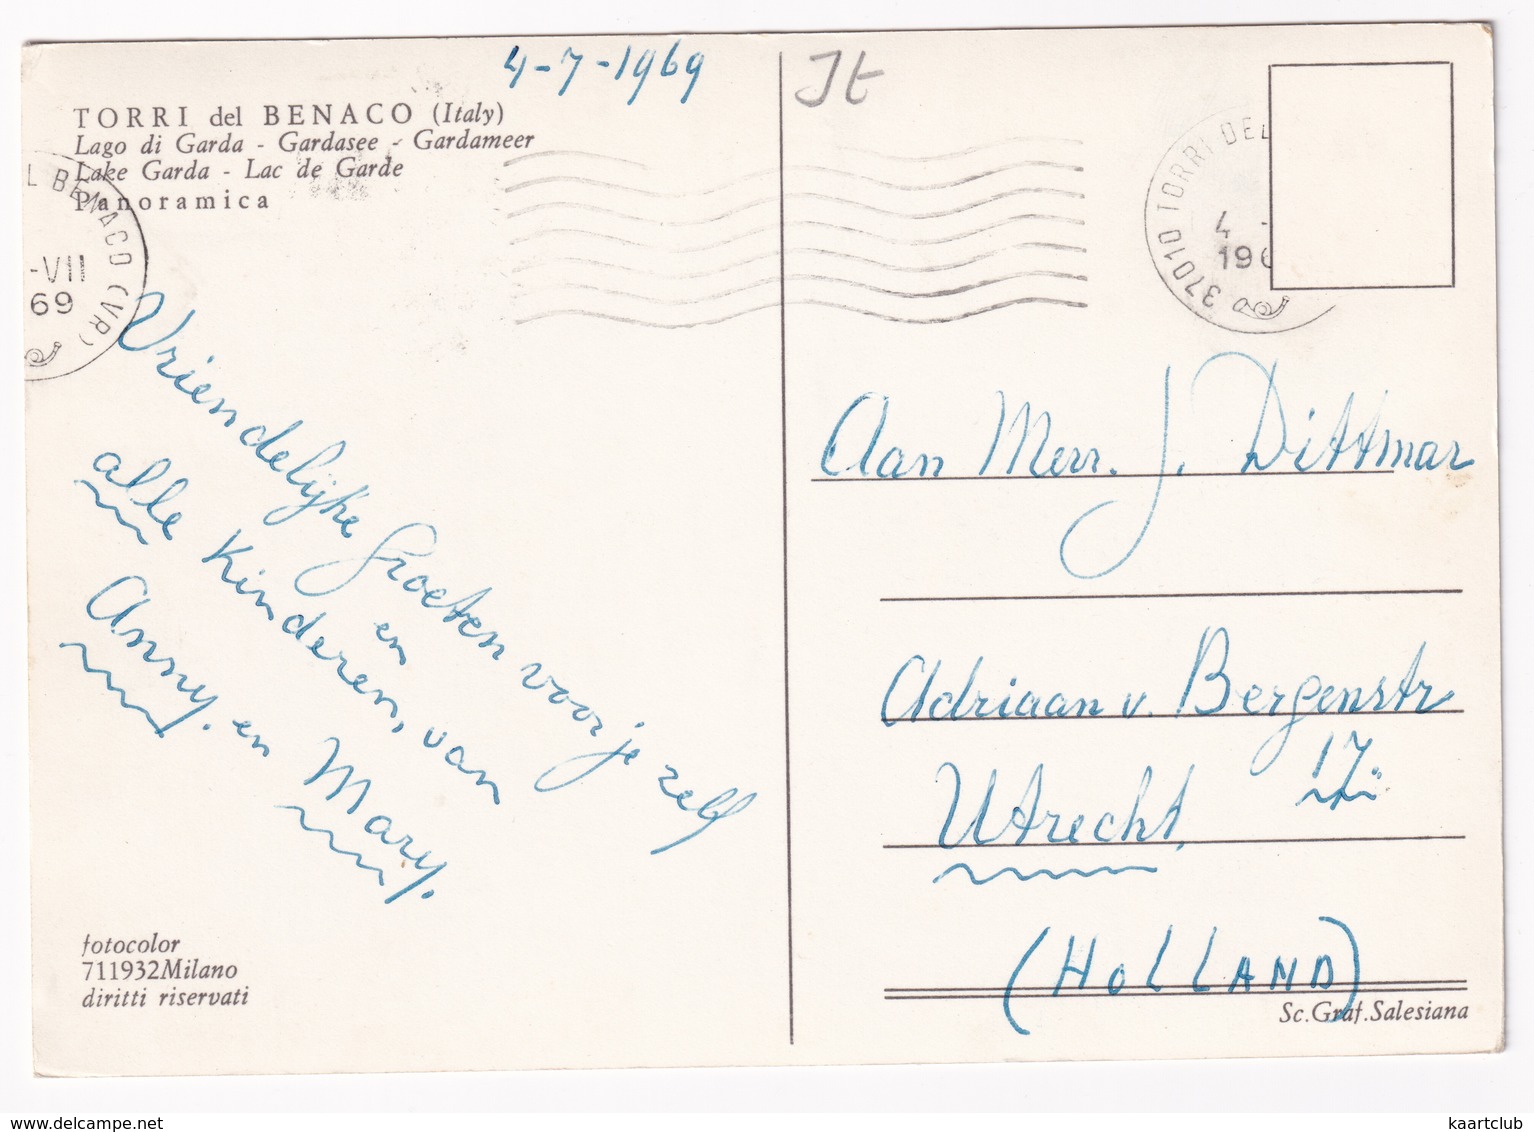 4-7-1969
Jt
TORRI del BENACO (Italy)
Lago di Garda - Gardasee - Gardameer
Lake Garda - Lac de Garde
Panoramica
L BENACO (VR)
-VII
69
37010 TORRI DEL
4 -
196
Vriendelijke Groeten voor je zelf
en
alle Kinderen, van
Anny. en Mary.
Aan Merr. J. Dittmar
Adriaan v. Bergenstr
17.
Utrecht,
(HOLLAND)
fotocolor
711932Milano
diritti riservati
Sc.Graf.Salesiana
kaartclub